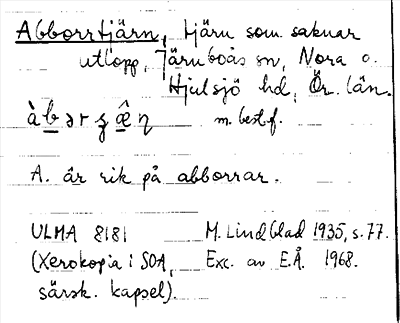 Abborrtjärn, tjärn som saknar
utlopp, Järnboås sn, Nora o.
Hjulsjö hd, Ör. län.
m. best. f.
A. är rik på abborrar.
ULMA 8181 M. Lindblad 1935, s. 77.
(Xerokopia i SOA, Exc. av E.Å. 1968.
särsk. kapsel).